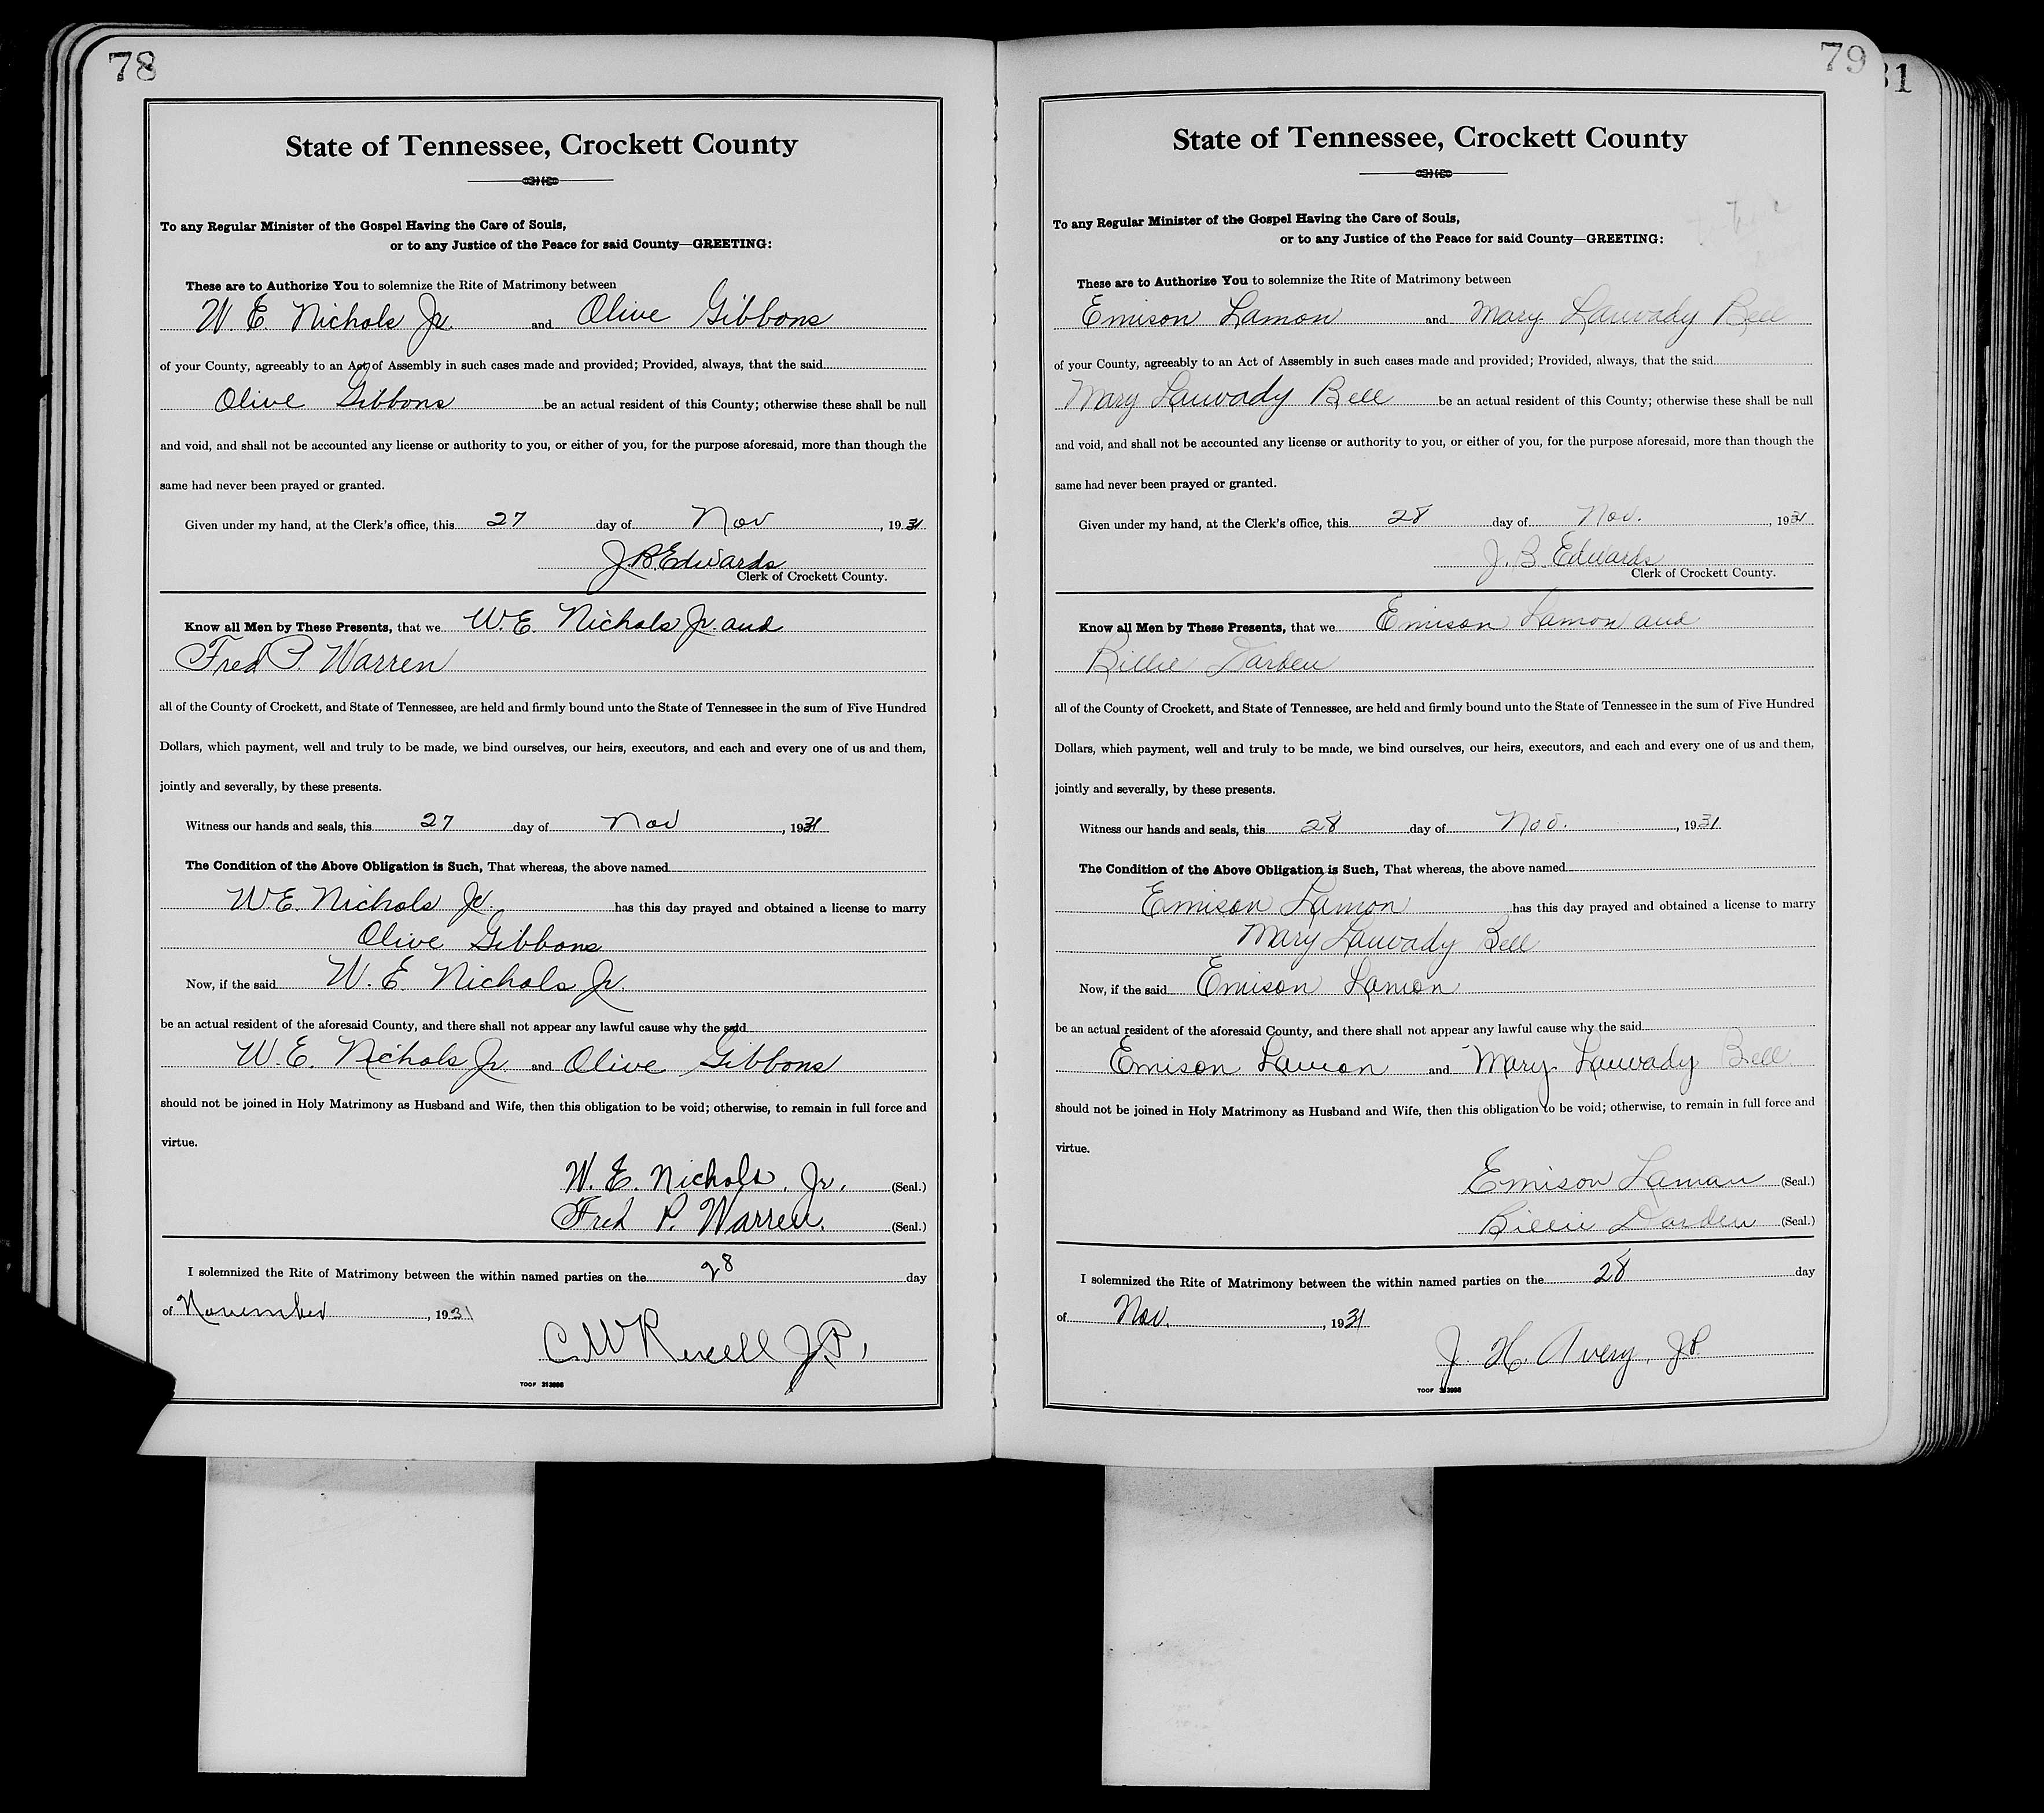 78
State of Tennessee, Crockett County
To any Regular Minister of the Gospel Having the Care of Souls,
or to any Justice of the Peace for said County—GREETING:
These are to Authorize You to solemnize the Rite of Matrimony between
W. E. Nichols Jr. and Olive Gibbons
of your County, agreeably to an Act of Assembly in such cases made and provided; Provided, always, that the said
Olive Gibbons be an actual resident of this County; otherwise these shall be null
and void, and shall not be accounted any license or authority to you, or either of you, for the purpose aforesaid, more than though the
same had never been prayed or granted.
Given under my hand, at the Clerk's office, this 27 day of Nov, 1931
J.B. Edwards
Clerk of Crockett County.
Know all Men by These Presents, that we W.E. Nichols Jr. and
Fred P. Warren
all of the County of Crockett, and State of Tennessee, are held and firmly bound unto the State of Tennessee in the sum of Five Hundred
Dollars, which payment, well and truly to be made, we bind ourselves, our heirs, executors, and each and every one of us and them,
jointly and severally, by these presents.
Witness our hands and seals, this 27 day of Nov, 1931
The Condition of the Above Obligation is Such, That whereas, the above named
W.E. Nichols Jr. has this day prayed and obtained a license to marry
Olive Gibbons
Now, if the said W. E. Nichols Jr.
be an actual resident of the aforesaid County, and there shall not appear any lawful cause why the said
W.E. Nichols Jr. and Olive Gibbons
should not be joined in Holy Matrimony as Husband and Wife, then this obligation to be void; otherwise, to remain in full force and
virtue.
W. E. Nichols, Jr. (Seal.)
Fred P. Warren. (Seal.)
I solemnized the Rite of Matrimony between the within named parties on the 28 day
of November, 1931
C W J.P.
TOOF 213998
79
State of Tennessee, Crockett County
To any Regular Minister of the Gospel Having the Care of Souls,
or to any Justice of the Peace for said County—GREETING:
These are to Authorize You to solemnize the Rite of Matrimony between
Emison Lamon and Mary Lauvady Bell
of your County, agreeably to an Act of Assembly in such cases made and provided; Provided, always, that the said
Mary Lauvady Bell be an actual resident of this County; otherwise these shall be null
and void, and shall not be accounted any license or authority to you, or either of you, for the purpose aforesaid, more than though the
same had never been prayed or granted.
Given under my hand, at the Clerk's office, this 28 day of Nov., 1931
J. B. Edwards
Clerk of Crockett County.
Know all Men by These Presents, that we Emison Lamon and
Billie Darden
all of the County of Crockett, and State of Tennessee, are held and firmly bound unto the State of Tennessee in the sum of Five Hundred
Dollars, which payment, well and truly to be made, we bind ourselves, our heirs, executors, and each and every one of us and them,
jointly and severally, by these presents.
Witness our hands and seals, this 28 day of Nov., 1931
The Condition of the Above Obligation is Such, That whereas, the above named
Emison Lamon has this day prayed and obtained a license to marry
Mary Lauvady Bell
Now, if the said Emison Lamon
be an actual resident of the aforesaid County, and there shall not appear any lawful cause why the said
Emison Lamon and Mary Lauvady Bell
should not be joined in Holy Matrimony as Husband and Wife, then this obligation to be void; otherwise, to remain in full force and
virtue.
Emison Laman (Seal.)
Billie Darden (Seal.)
I solemnized the Rite of Matrimony between the within named parties on the 28 day
of Nov., 1931
J. H. Avery, J.P.
TOOF
31